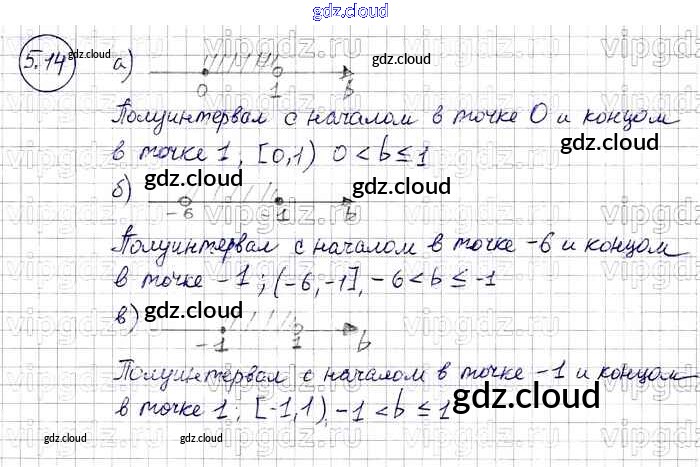 gdz.cloud
5.14 gdz.cloud а) gdz.cloud
0 1 b
Полуинтервал с началом в точке 0 и концом
в точке 1, [0,1) 0 < b ≤ 1
gdz.cloud gdz.cloud
б)
-6 1 b
Полуинтервал с началом в точке -6 и концом
в точке -1; (-6,-1], -6 < b ≤ -1
в) gdz.cloud
-1 1 b
Полуинтервал с началом в точке -1 и концом
в точке 1; [-1,1), -1 < b ≤ 1
gdz.cloud
gdz.cloud gdz.cloud